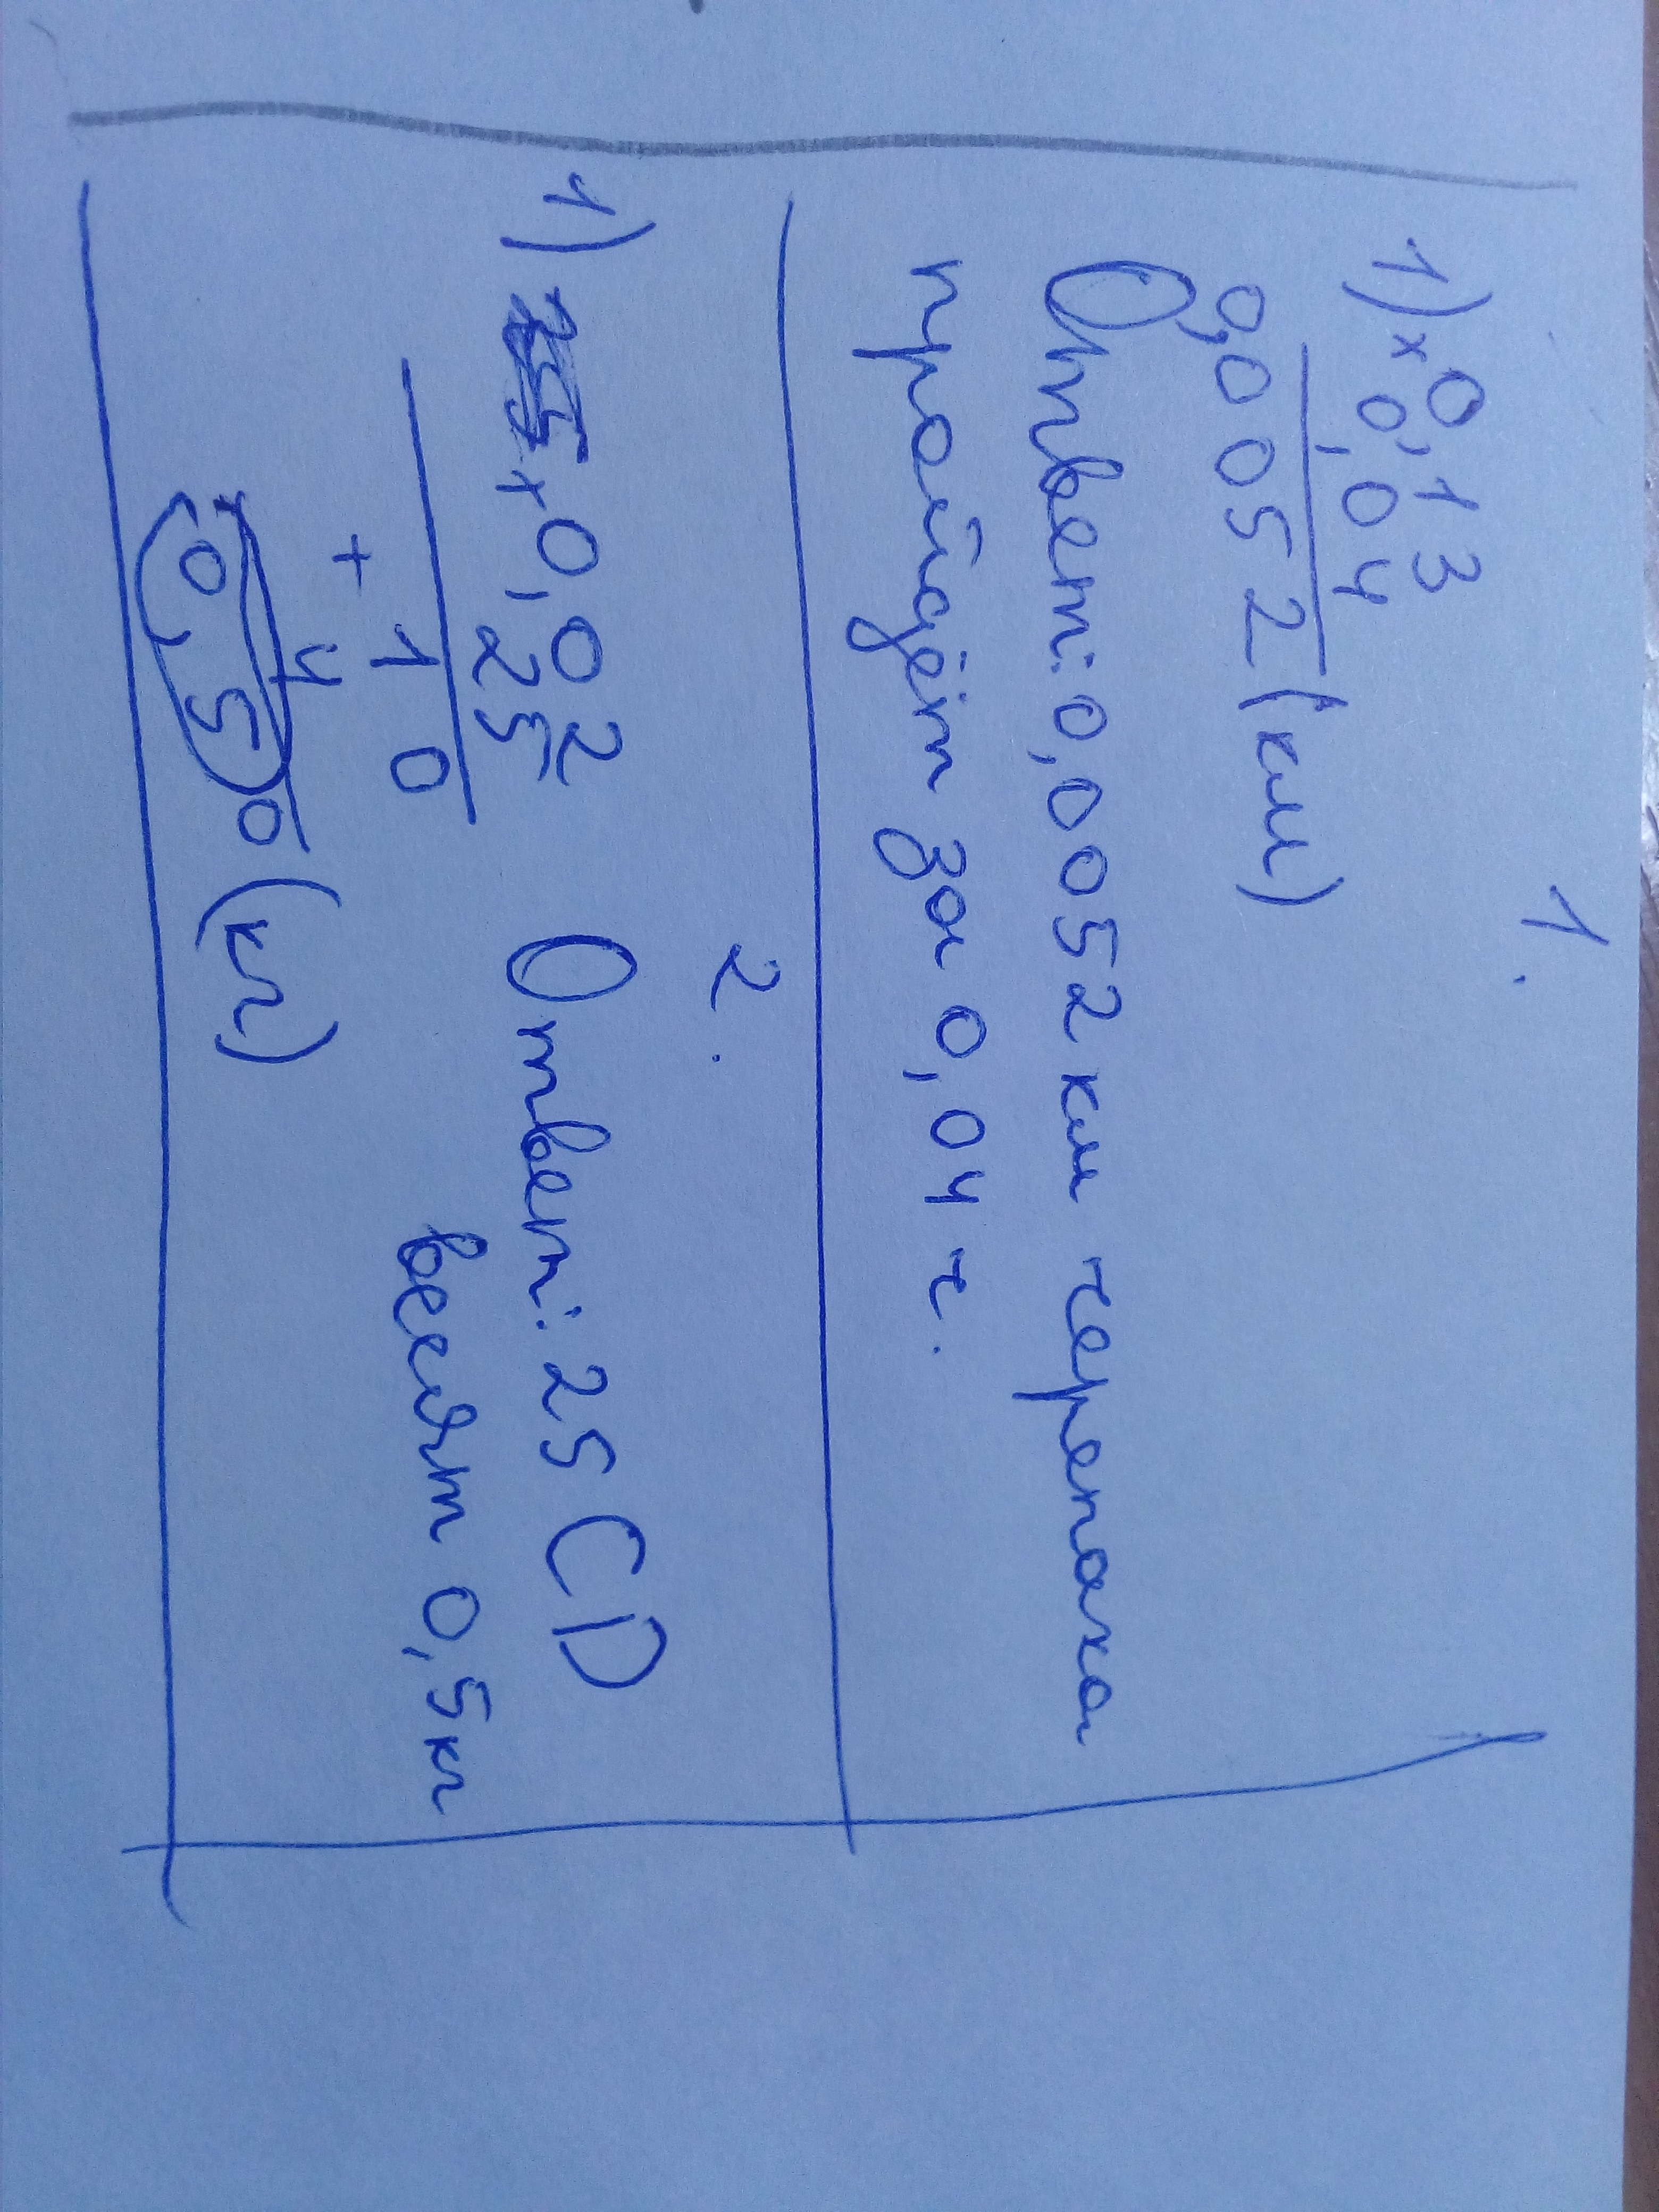 1.
1) × 0,13
0,04
0,0052 (км)
Ответ: 0,0052 км черепаха
пройдёт за 0,04 ч.
2.
1) × 0,02
25
10
+ 4
0,50 (кг)
Ответ: 25 CD
весят 0,5 кг